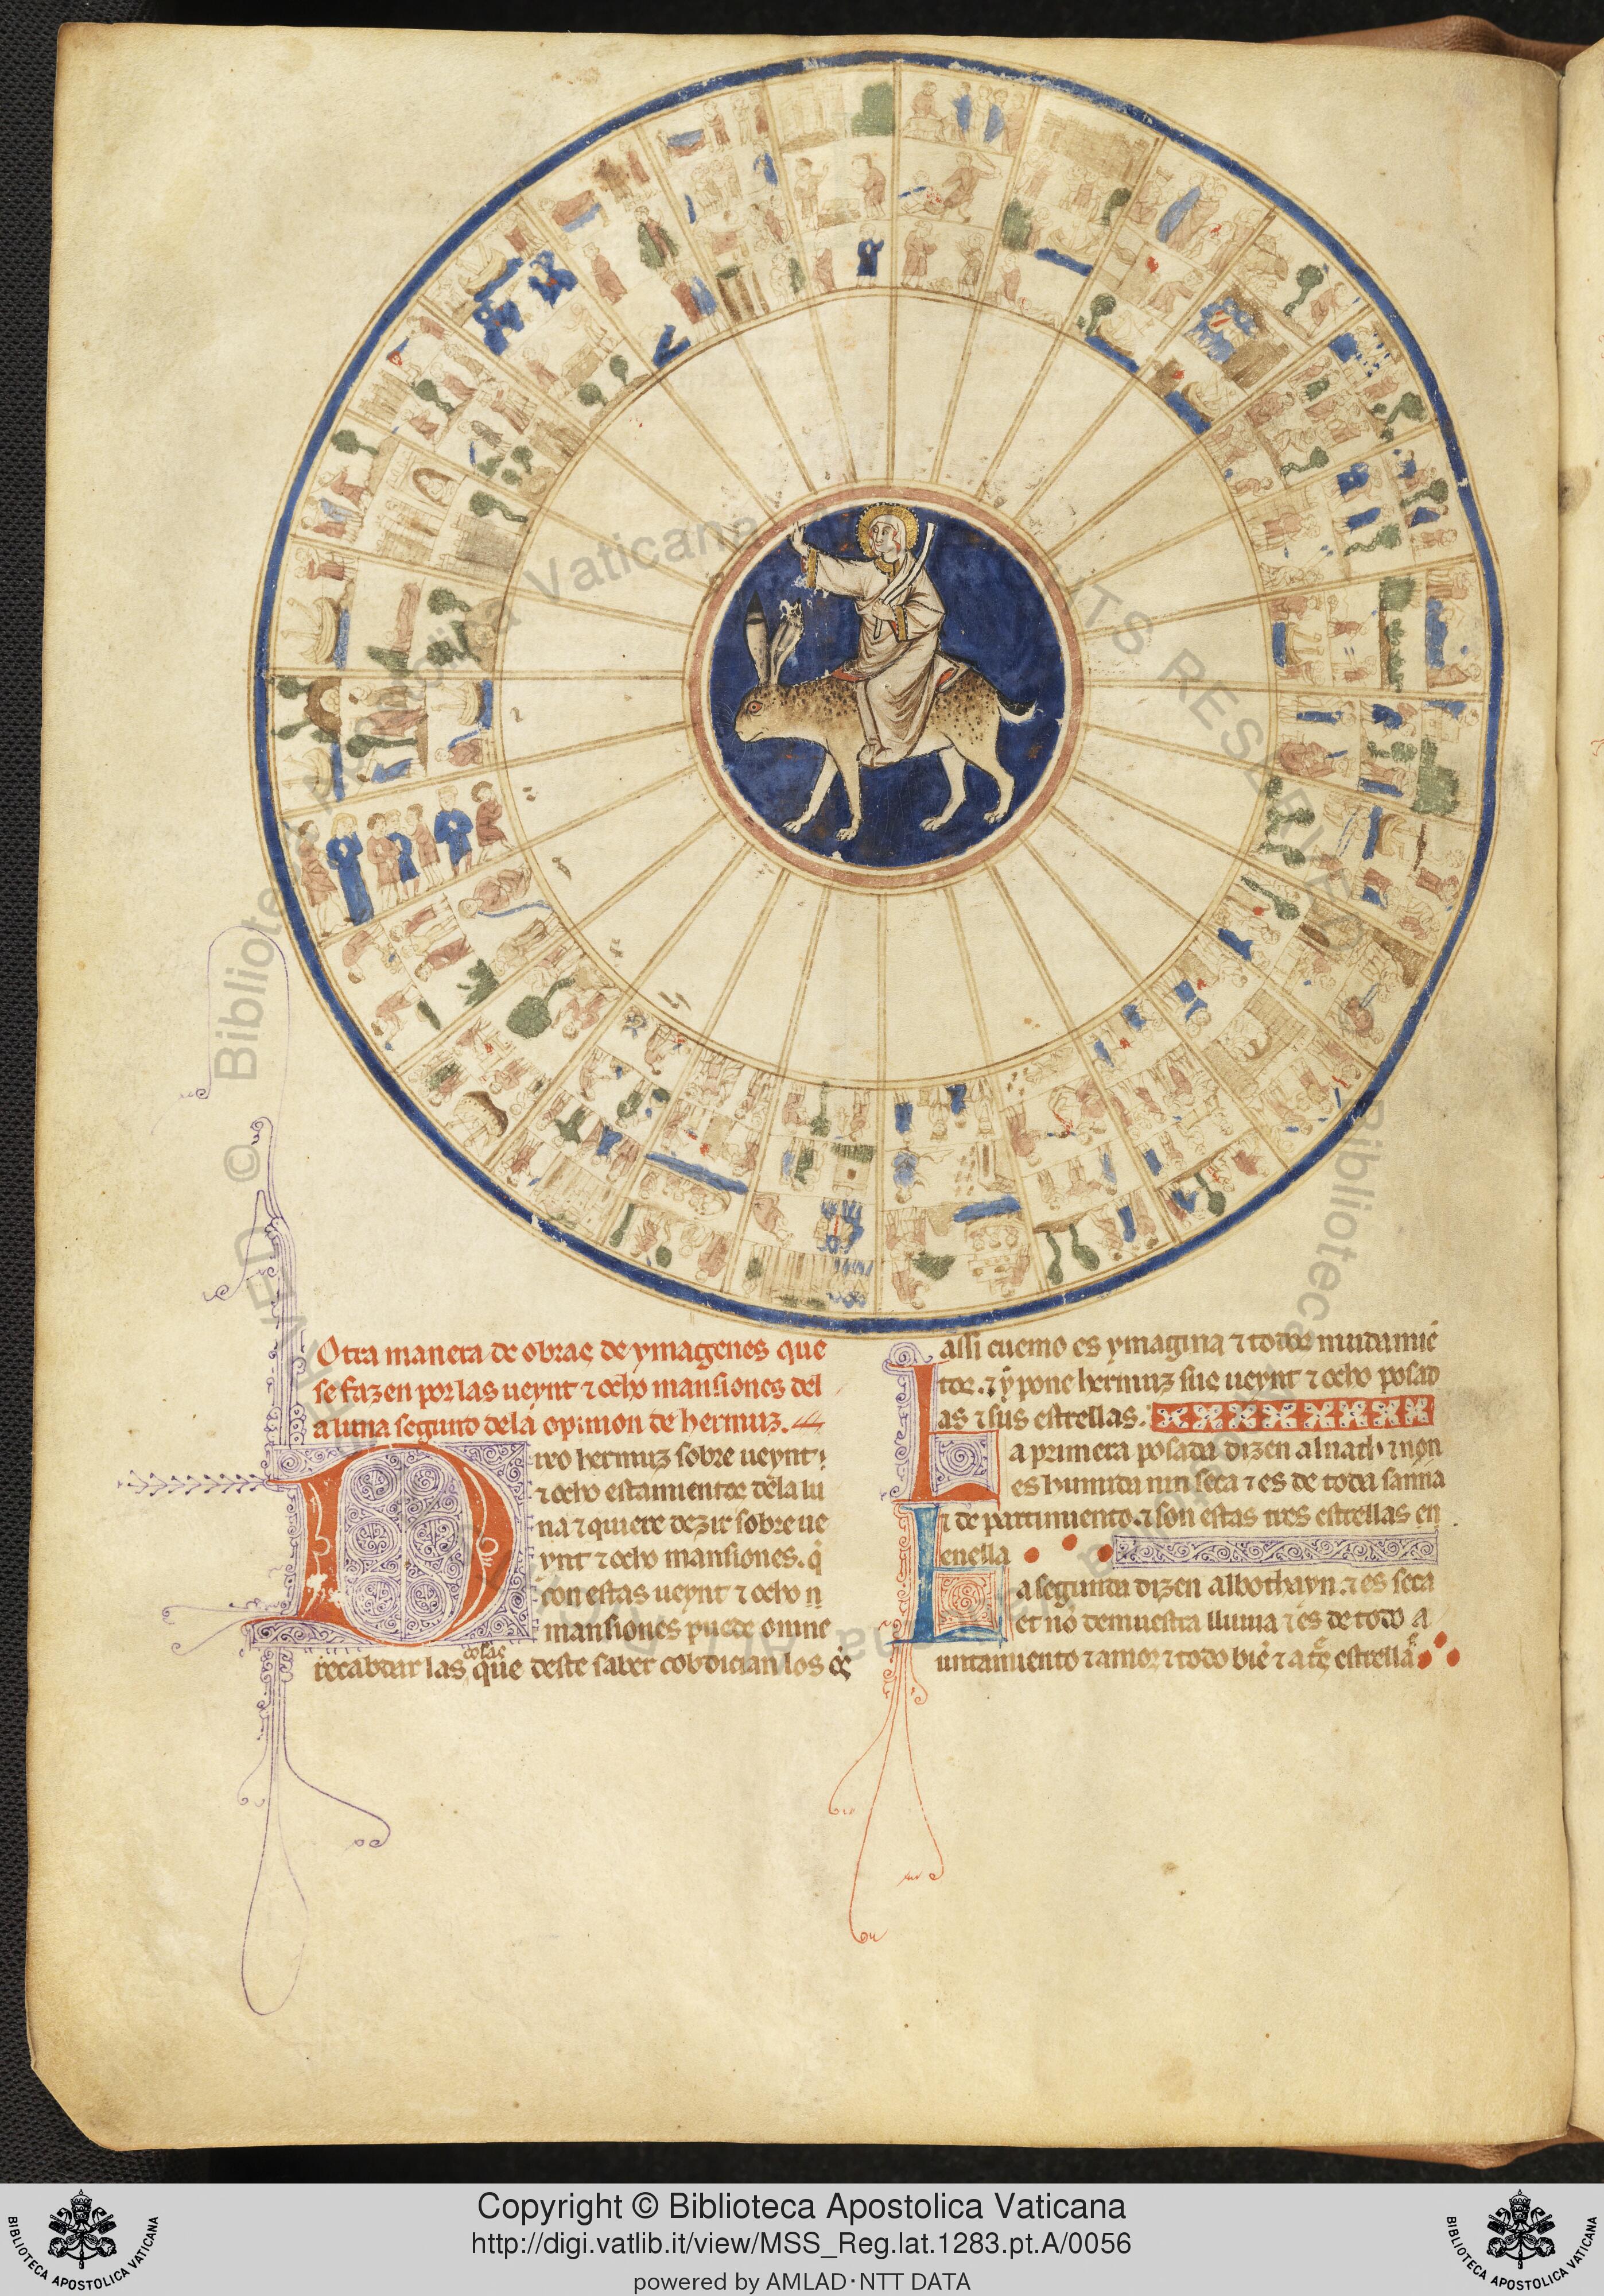 Otra manera de obras de ymagenes que
se fazen por las ueynt ⁊ ocho mansiones del
a luna segund dela opinion de hermuz.
Dixo hermuz sobre ueynt
⁊ ocho estamientos dela lu
na ⁊ quiere dezir sobre ue
ynt ⁊ ocho mansiones. q̇
con estas ueynt ⁊ ocho
mansiones puede omne
recabdar las cosas que deste saber cobdician los
assi cuemo es ymagina ⁊ todos mudamiē
tos. ⁊ ẏ pone hermuz sus ueynt ⁊ ocho posad
as ⁊ sus estrellas.
La primera posada dizen alnath ⁊ non
es humida nin seca ⁊ es de toda sanna
⁊ de partimiento. ⁊ son estas tres estrellas en
enella
La segunda dizen albothayn. ⁊ es seca
et no demuestra lluuia ⁊ es de todo a
untamiento ⁊ amor ⁊ todo biē ⁊ a estrellas
© Biblioteca Apostolica Vaticana
Copyright © Biblioteca Apostolica Vaticana
http://digi.vatlib.it/view/MSS_Reg.lat.1283.pt.A/0056
powered by AMLAD·NTT DATA
BIBLIOTECA APOSTOLICA VATICANA
BIBLIOTECA APOSTOLICA VATICANA